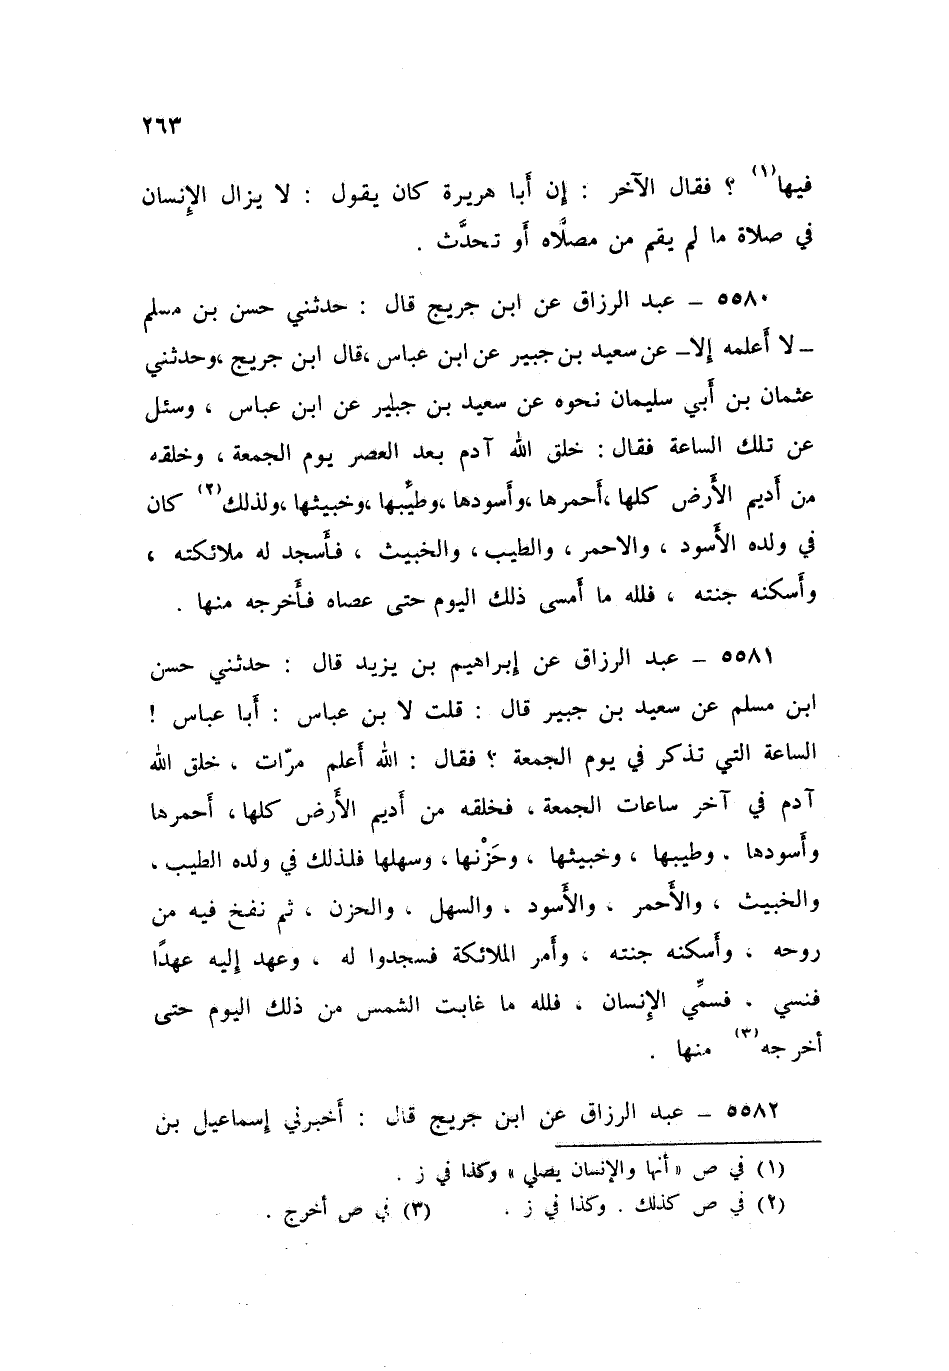 ٢٦٣
فيها(١) ؟ فقال الآخر : إن أَبا هريرة كان يقول : لا يزال الإِنسان
في صلاة ما لم يقم من مصلَّاه أَو تحدَّث .
٥٥٨٠ – عبد الرزاق عن ابن جريج قال : حدثني حسن بن مسلم
– لا أَعلمه إلا – عن سعيد بن جبير عن ابن عباس ، قال ابن جريج ، وحدثني
عثمان بن أَبي سليمان نحوه عن سعيد بن جبير عن ابن عباس ، وسئل
عن تلك الساعة فقال : خلق الله آدم بعد العصر يوم الجمعة ، وخلقه
من أَديم الأَرض كلها ، أَحمرها ، وأَسودها ، وطيِّبها ، وخبيثها ، ولذلك(٢) كان
في ولده الأَسود ، والاحمر ، والطيب ، والخبيث ، فأَسجد له ملائكته ،
وأَسكنه جنته ، فلله ما أَمسى ذلك اليوم حتى عصاه فأَخرجه منها .
٥٥٨١ – عبد الرزاق عن إبراهيم بن يزيد قال : حدثني حسن
ابن مسلم عن سعيد بن جبير قال : قلت لا بن عباس : أَبا عباس !
الساعة التي تذكر في يوم الجمعة ؟ فقال : الله أَعلم مرّات ، خلق الله
آدم في آخر ساعات الجمعة ، فخلقه من أَديم الأَرض كلها ، أَحمرها
وأَسودها ، وطيبها ، وخبيثها ، وحَزْنها ، وسهلها فلذلك في ولده الطيب ،
والخبيث ، والأَحمر ، والأَسود ، والسهل ، والحزن ، ثم نفخ فيه من
روحه ، وأَسكنه جنته ، وأَمر الملائكة فسجدوا له ، وعهد إليه عهدًا
فنسي ، فسمِّي الإِنسان ، فلله ما غابت الشمس من ذلك اليوم حتى
أخرجه(٣) منها .
٥٥٨٢ – عبد الرزاق عن ابن جريج قال : أَخبرني إسماعيل بن
(١) في ص « أنها والإنسان يصلي » وكذا في ز .
(٢) في ص كذلك . وكذا في ز . (٣) في ص أخرج .